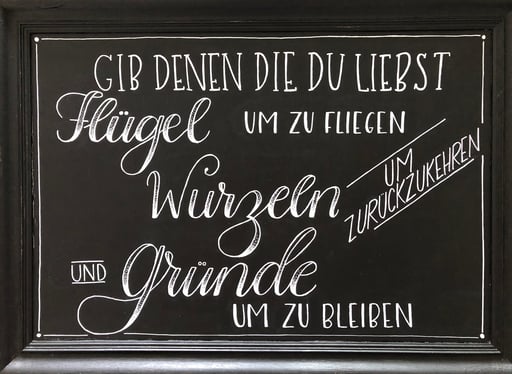 GIB DENEN DIE DU LIEBST
Flügel UM ZU FLIEGEN
Wurzeln UM ZURÜCKZUKEHREN
UND Gründe
UM ZU BLEIBEN